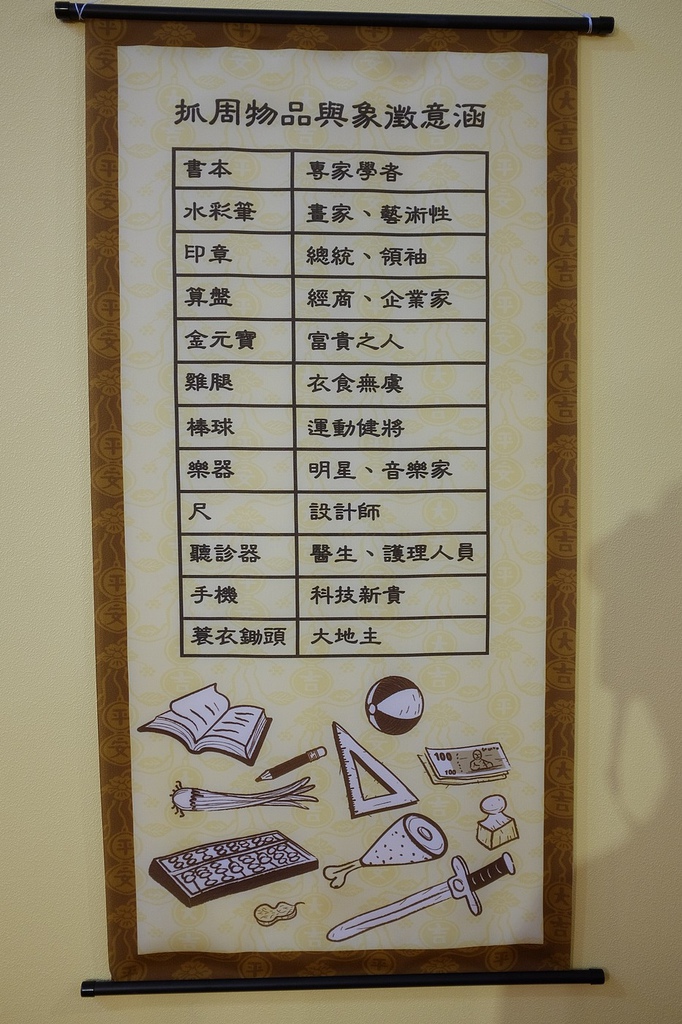 抓周物品與象徵意涵
書本 專家學者
水彩筆 畫家、藝術性
印章 總統、領袖
算盤 經商、企業家
金元寶 富貴之人
雞腿 衣食無虞
棒球 運動健將
樂器 明星、音樂家
尺 設計師
聽診器 醫生、護理人員
手機 科技新貴
蓑衣鋤頭 大地主
100
100